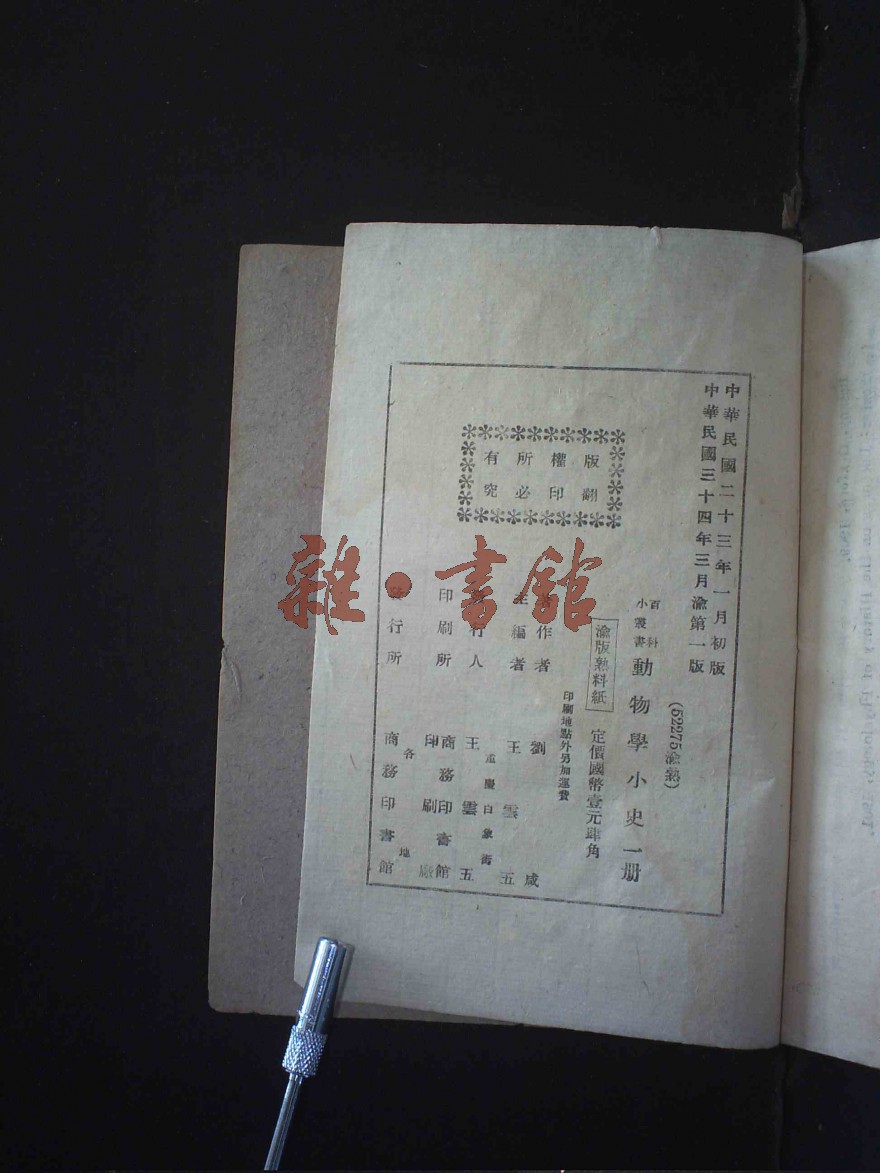 中華民國二十三年一月初版
中華民國三十四年三月渝第一版
(52275渝熟)
百科
小叢書
動物學小史一册
渝版熟料紙
定價國幣壹元肆角
印刷地點外另加運費
作者 劉咸
主編者 王雲五
重慶白象街
行人 王雲五
印刷所 商務印書館
印刷廠
發行所 各地
商務印書館
版權所有
翻印必究
雜·書館